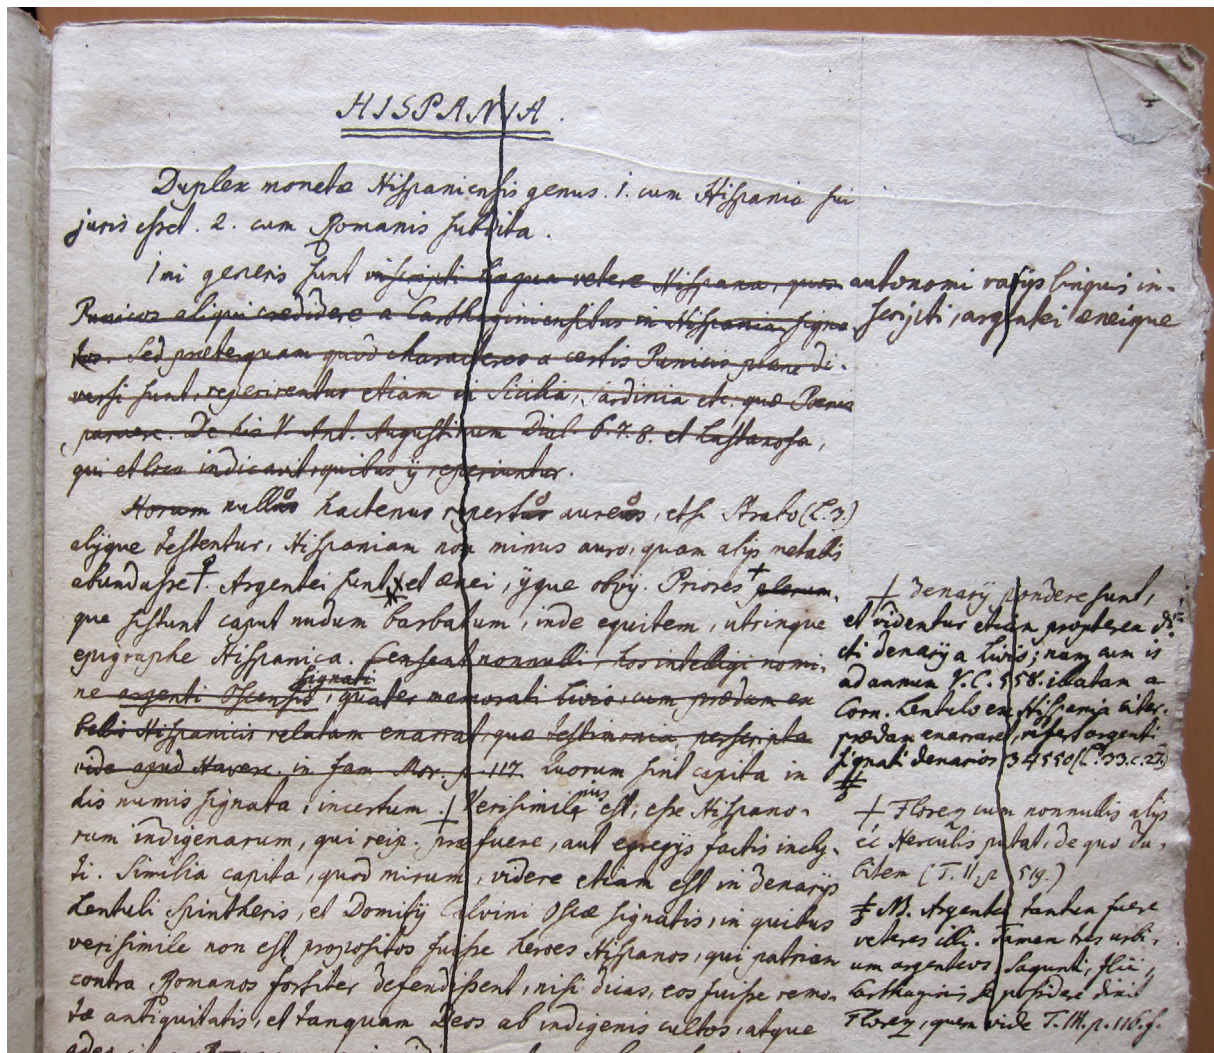 HISPANIA.
Duplex monetæ Hispaniensis genus. 1. cum Hispania sui
juris esset. 2. cum Romanis subdita.
1mi generis sunt inscripti lingua vetere Hispana, quos
Punicos aliqui credidere a Carthaginiensibus in Hispania signa-
tos. Sed præterquam quod characteres a certis Punicis plane di-
versi sunt, reperirentur etiam in Sicilia, Sardinia etc. quæ Pœnis
paruere. De his V. Ant. Augustinum Dial. 6. 7. 8. et Lastanosa,
qui et loca indicavit, quibus ij reperiuntur.
autonomi varijs linguis in-
scripti, argentei æneique
Horum nullus hactenus repertus aureus, etsi Strabo (L. 3.)
alijque testentur, Hispaniam non minus auro, quam alijs metallis
abundasse. Argentei sunt et ænei, ijque obvij. Priores plerum-
que sistunt caput nudum barbatum, inde equitem, utrinque
epigraphe Hispanica. Censent nonnulli, hos intelligi nomi-
ne argenti Oscensis signati, quater memorati Livio, cum prædam ex
bellis Hispanicis relatam enarrat, quæ testimonia perscripta
vide apud Haverc. in fam. Mor. p. 117. Quorum sint capita in
his numis signata, incertum. Verisimilius est, esse Hispano-
rum indigenarum, qui reip. præfuere, aut egregijs factis incly-
ti. Similia capita, quod mirum, videre etiam est in denarijs
Lentuli Spintheris, et Domitij Calvini Oscæ signatis, in quibus
verisimile non est propositos fuisse heroes Hispanos, qui patriam
contra Romanos fortiter defendissent, nisi dicas, eos fuisse remo-
tæ antiquitatis, et tanquam Deos ab indigenis cultos, atque
+ denarij pondere sunt,
et videntur etiam propterea di-
cti denarij a Livio; nam cum is
ad annum V.C. 558. illatam a
Corn. Lentulo ex Hispania citer.
prædam enarraret, refert argenti
signati denarios 34550 (L. 33. c. 27.)
+ Florez cum nonnullis alijs
ēē Herculis putat, de quo du-
bitem (T. II. p. 519.)
NB. Argentei tantum fuere
veteres illi. Tamen tres urbi-
um argenteos, Sagunti,
Carthaginis se possidere dixit
Florez, quem vide T. III. p. 116. s.